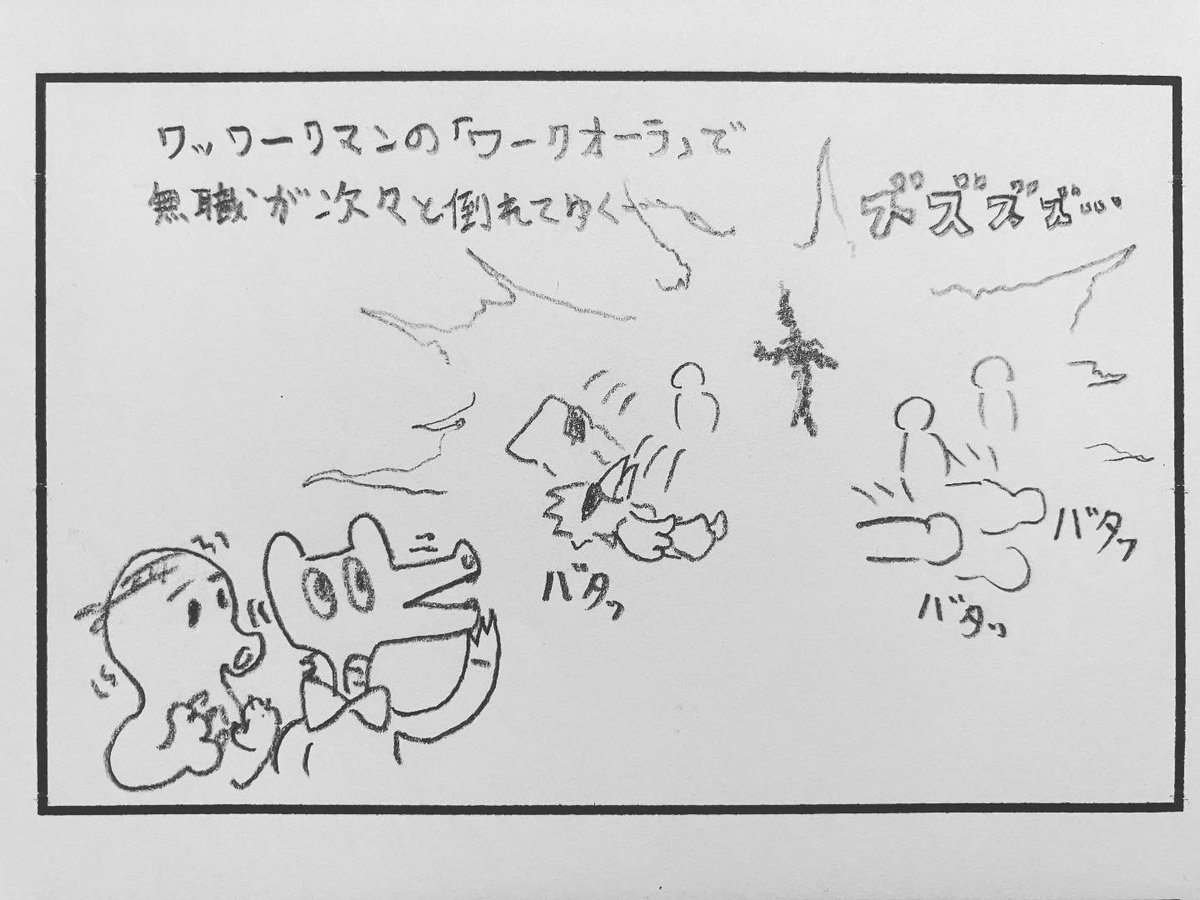 ワッワークマンの「ワークオーラ」で
無職が次々と倒れてゆく
ズズズズ…
バタッ
バタッ
バタッ